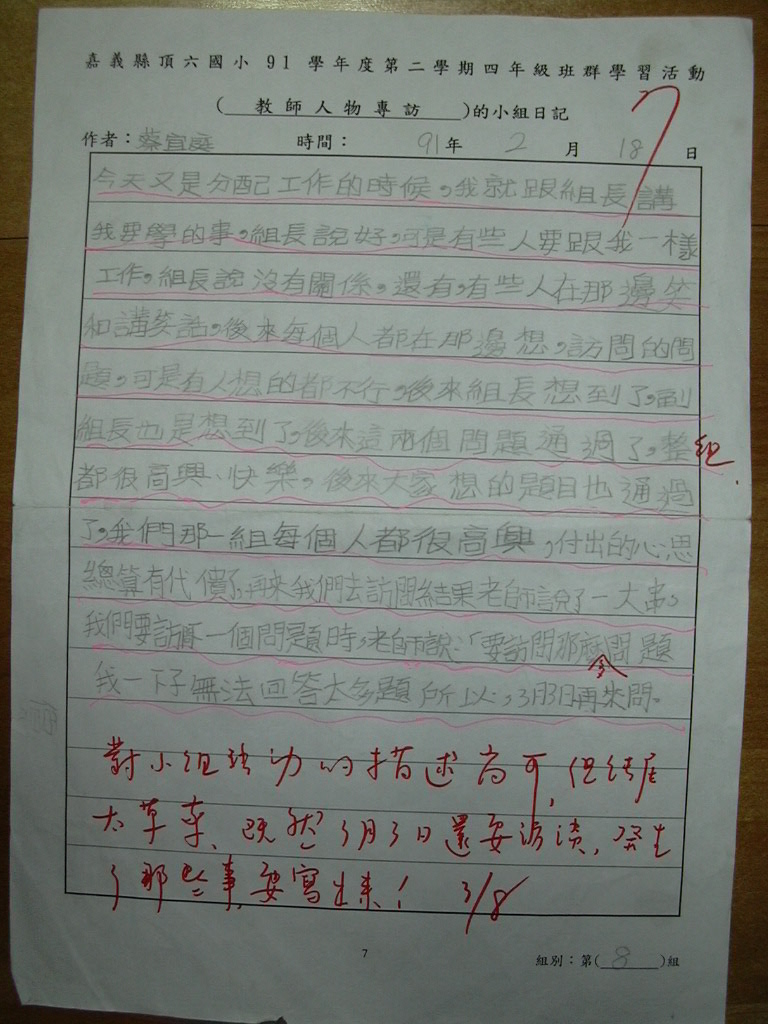 嘉義縣頂六國小 91 學年度第二學期四年級班群學習活動
(教師人物專訪)的小組日記
作者：蔡宜庭 時間： 91年 2 月 18 日
今天又是分配工作的時候，我就跟組長講
我要學的事，組長說好，可是有些人要跟我一樣
工作，組長說沒有關係，還有，有些人在那邊笑
和講笑話，後來每個人都在那邊想，訪問的問
題，可是有人想的都不行，後來組長想到了，副
組長也是想到了，後來這兩個問題通過了，整組
都很高興、快樂，後來大家想的題目也通過
了，我們那一組每個人都很高興，付出的心思
總算有代價了，再來我們去訪問結果老師說了一大串，
我們要訪下一個問題時，老師說：「要訪問那麼問題
我一下子無法回答太多題所以，3月3日再來問。
對小組活動的描述尚可，但結尾
太草率、既然3月3日還要訪談，發生
了那些事，要寫出來！ 3/8
7
組別：第(8)組